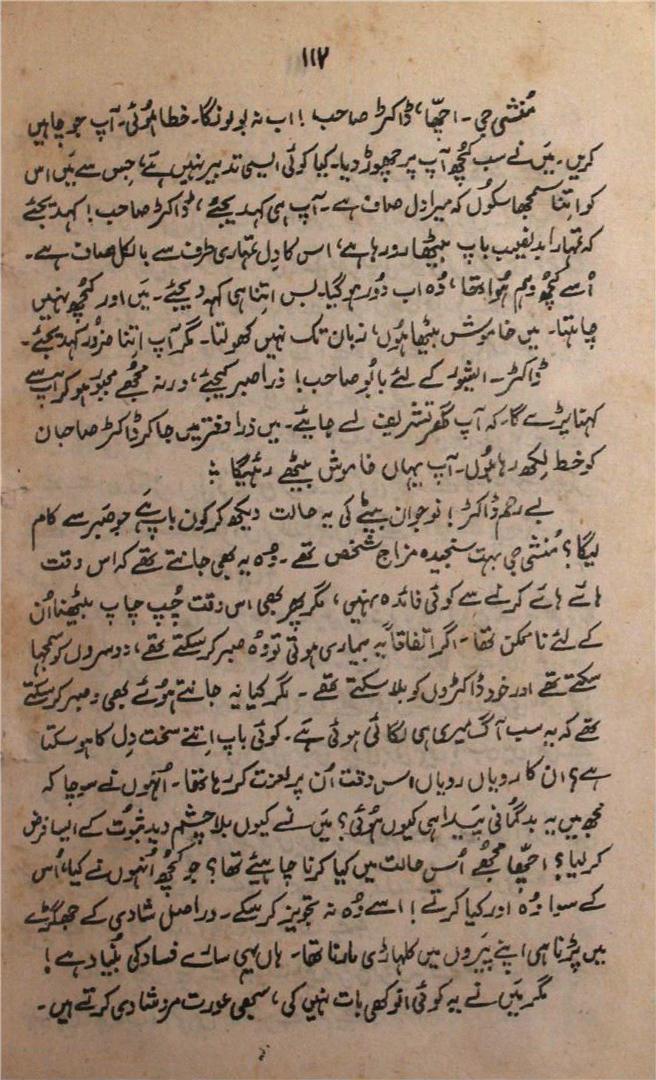 ۱۱۷
مُنشی جی ۔ اچھّا، ڈاکٹر صاحب! اب نہ بولونگا۔ خطا ہُوئی۔ آپ جو چاہیں
کریں۔ مَیں نے سب کُچھ آپ پر چھوڑ دیا۔ کیا کوئی ایسی تدبیر نہیں ہے، جِس سے مَیں اس
کو اتنا سمجھا سکُوں کہ میرا دِل صاف ہے۔ آپ ہی کہدیجئے، ڈاکٹر صاحب! کہدیجئے
کہ تمہارا بدنصیب باپ بیٹھا رو رہا ہے، اس کا دِل تمہاری طرف سے بالکل صاف ہے۔
اُسے کُچھ وہم ہُوا تھا، وُہ اب دُور ہو گیا۔ بس اتنا ہی کہہ دیجئے۔ مَیں اور کُچھ نہیں
چاہتا۔ میں خاموش بیٹھا ہوں، زبان تک نہیں کھولتا۔ مگر آپ اتنا ضرور کہدیجئے۔
ڈاکٹر۔ ایشور کے لئے بابُو صاحب! ذرا صبر کیجئے، ورنہ مُجھے مجبُور ہو کر آپ سے
کہنا پڑے گا۔ کہ آپ گھر تشریف لے جایئے۔ میں ذرا دفتر میں جا کر ڈاکٹر صاحبان
کو خط لِکھ رہا ہُوں۔ آپ یہاں خاموش بیٹھے رہیگا ؞
بے رحم ڈاکٹر! نوجوان بیٹے کی یہ حالت دیکھ کر کون باپ ہَے جو صَبر سے کام
لیگا؟ مُنشی جی بہت سنجیدہ مزاج شخص تھے۔ وُہ یہ بھی جانتے تھے کہ اس وقت
ہائے ہائے کرنے سے کوئی فائدہ نہیں، مگر پھر بھی اس وقت چُپ چاپ بیٹھنا اُن
کے لئے ناممکن تھا۔ اگر اتفاقاً یہ بیماری ہوتی تو وُہ صبر کر سکتے تھے، دوسروں کو سمجھا
سکتے تھے اور خود ڈاکٹروں کو بلا سکتے تھے۔ مگر کیا یہ جانتے ہُوئے بھی وہ صبر کر سکتے
تھے کہ یہ سب آگ میری ہی لگائی ہوئی ہَے۔ کوئی باپ اِتنے سخت دِل کا ہو سکتا
ہے؟ ان کا رویاں رویاں اس وقت اُن پر لعنت کر رہا تھا۔ اُنہوں نے سوچا کہ
مُجھ میں یہ بدگمانی پَیدا ہی کیوں ہُوئی؟ مَیں نے کیوں بلا چشم دید ثبُوت کے ایسا فرض
کر لیا؟ اچھّا مُجھے اُس حالت میں کیا کرنا چاہیئے تھا؟ جو کُچھ اُنہوں نے کیا، اُس
کے سوا وُہ اور کیا کرتے! اسے وُہ نہ تجویز کر سکے۔ دراصل شادی کے جھگڑے
میں پڑنا ہی اپنے پَیروں میں کلہاڑی مارنا تھا۔ ہاں یہی سارے فساد کی بُنیاد ہے!
مگر مَیں نے یہ کوئی انوکھی بات نہیں کی، سبھی عورت مرد شادی کرتے ہیں۔